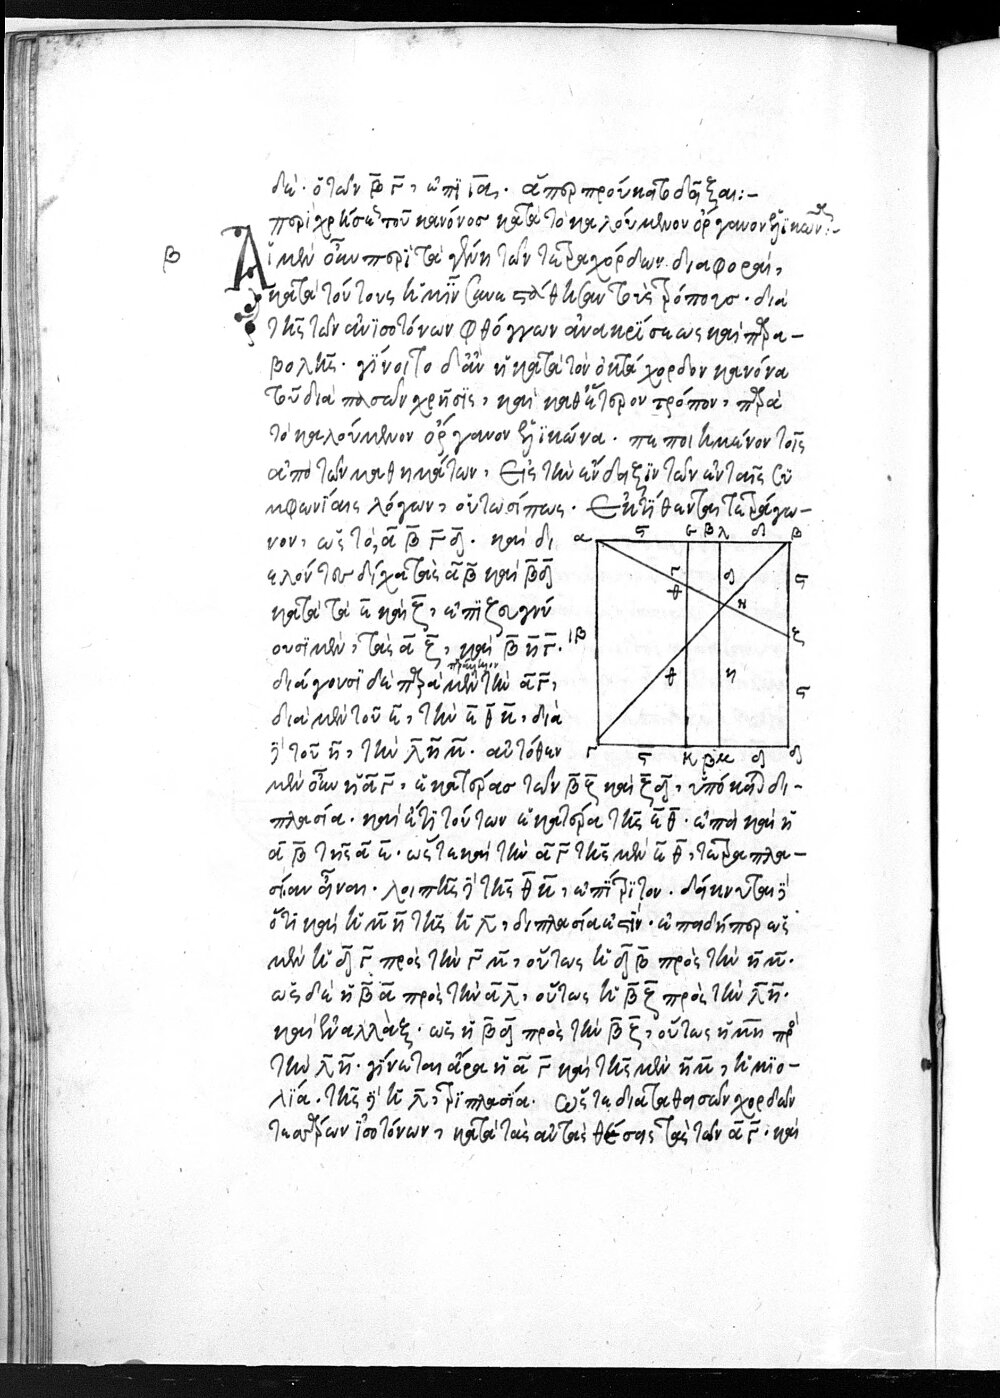 δὲ· ὁ τῶν β̅ γ̅, ἐπὶ ι̅α̅. ἅπερ προύκειτο δεῖξαι:-
περὶ χρήσεως τοῦ κανόνος κατὰ τὸ καλούμενον ὄργανον ἑλικῶνα:-
β
Αἱ μὲν οὖν περὶ τὰ γένη τῶν τετραχόρδων διαφοραὶ,
κατὰ τούτους ἡμῖν συνεστάθησαν τοὺς τρόπους. διὰ
τῆς τῶν ἀνισοτόνων φθόγγων ἀνακρίσεως καὶ παρα-
βολῆς. γίνοιτο δ' ἂν ἡ κατὰ τὸν ὀκτάχορδον κανόνα
τοῦ διὰ πασῶν χρῆσις, καὶ καθ' ἕτερον τρόπον, παρὰ
τὸ καλούμενον ὄργανον ἑλικῶνα. πεποιημένον τοῖς
ἀπὸ τῶν μαθημάτων, εἰς τὴν ἔνδειξιν τῶν ἐν ταῖς συ
μφωνίαις λόγων, οὕτωσί πως. ἐκτίθενται τετράγω-
νον, ὡς τὸ, α̅ β̅ γ̅ δ̅. καὶ δι
ελόντες δίχα τὰς α̅ β̅ καὶ β̅ δ̅
κατὰ τὰ ε̅ καὶ ζ̅, ἐπιζευγνύ
ουσι μὲν, τὰς α̅ ζ̅, καὶ β̅ η̅ γ̅.
διάγουσι δὲ παρὰ μὲν τὴν α̅ γ̅,
διὰ μὲν τοῦ ε̅, τὴν ε̅ θ̅ κ̅, διὰ
δὲ τοῦ η̅, τὴν λ̅ η̅ μ̅. αὐτόθεν
μὲν οὖν ἡ α̅ γ̅, ἑκατέρας τῶν β̅ ζ̅ καὶ ζ̅ δ̅, ὑπόκειται δι-
πλασία. καὶ ἔτι τούτων ἑκατέρα τῆς ε̅ θ̅. ἐπεὶ καὶ ἡ
α̅ β̅ τῆς α̅ ε̅. ὥστε καὶ τὴν α̅ γ̅ τῆς μὲν ε̅ θ̅, τετραπλα-
σίαν εἶναι. λοιπῆς δὲ τῆς θ̅ κ̅, ἐπίτριτον. δείκνυται δὲ
ὅτι καὶ ἡ μ̅ η̅ τῆς η̅ λ̅, διπλασία ἐστίν. ἐπειδήπερ ὡς
μὲν ἡ δ̅ γ̅ πρὸς τὴν γ̅ μ̅, οὕτως ἡ δ̅ β̅ πρὸς τὴν η̅ μ̅.
ὡς δὲ ἡ β̅ α̅ πρὸς τὴν α̅ λ̅, οὕτως ἡ β̅ ζ̅ πρὸς τὴν λ̅ η̅.
καὶ ἐναλλὰξ. ὡς ἡ β̅ δ̅ πρὸς τὴν β̅ ζ̅, οὕτως ἡ μ̅ η̅ πρὸς
τὴν λ̅ η̅. γίνεται ἄρα ἡ α̅ γ̅ καὶ τῆς μὲν η̅ μ̅, ἡμιο-
λία. τῆς δὲ η̅ λ̅, τριπλασία. ὥστε διαταθεισῶν χορδῶν
τεσσάρων ἰσοτόνων, κατὰ τὰς αὐτὰς θέσεις ταῖς τῶν α̅ γ̅. καὶ
α ϛ ε β λ δ β
γ δ ϛ
θ η ζ
ιβ
θ η ϛ
γ ϛ κ β μ δ δ